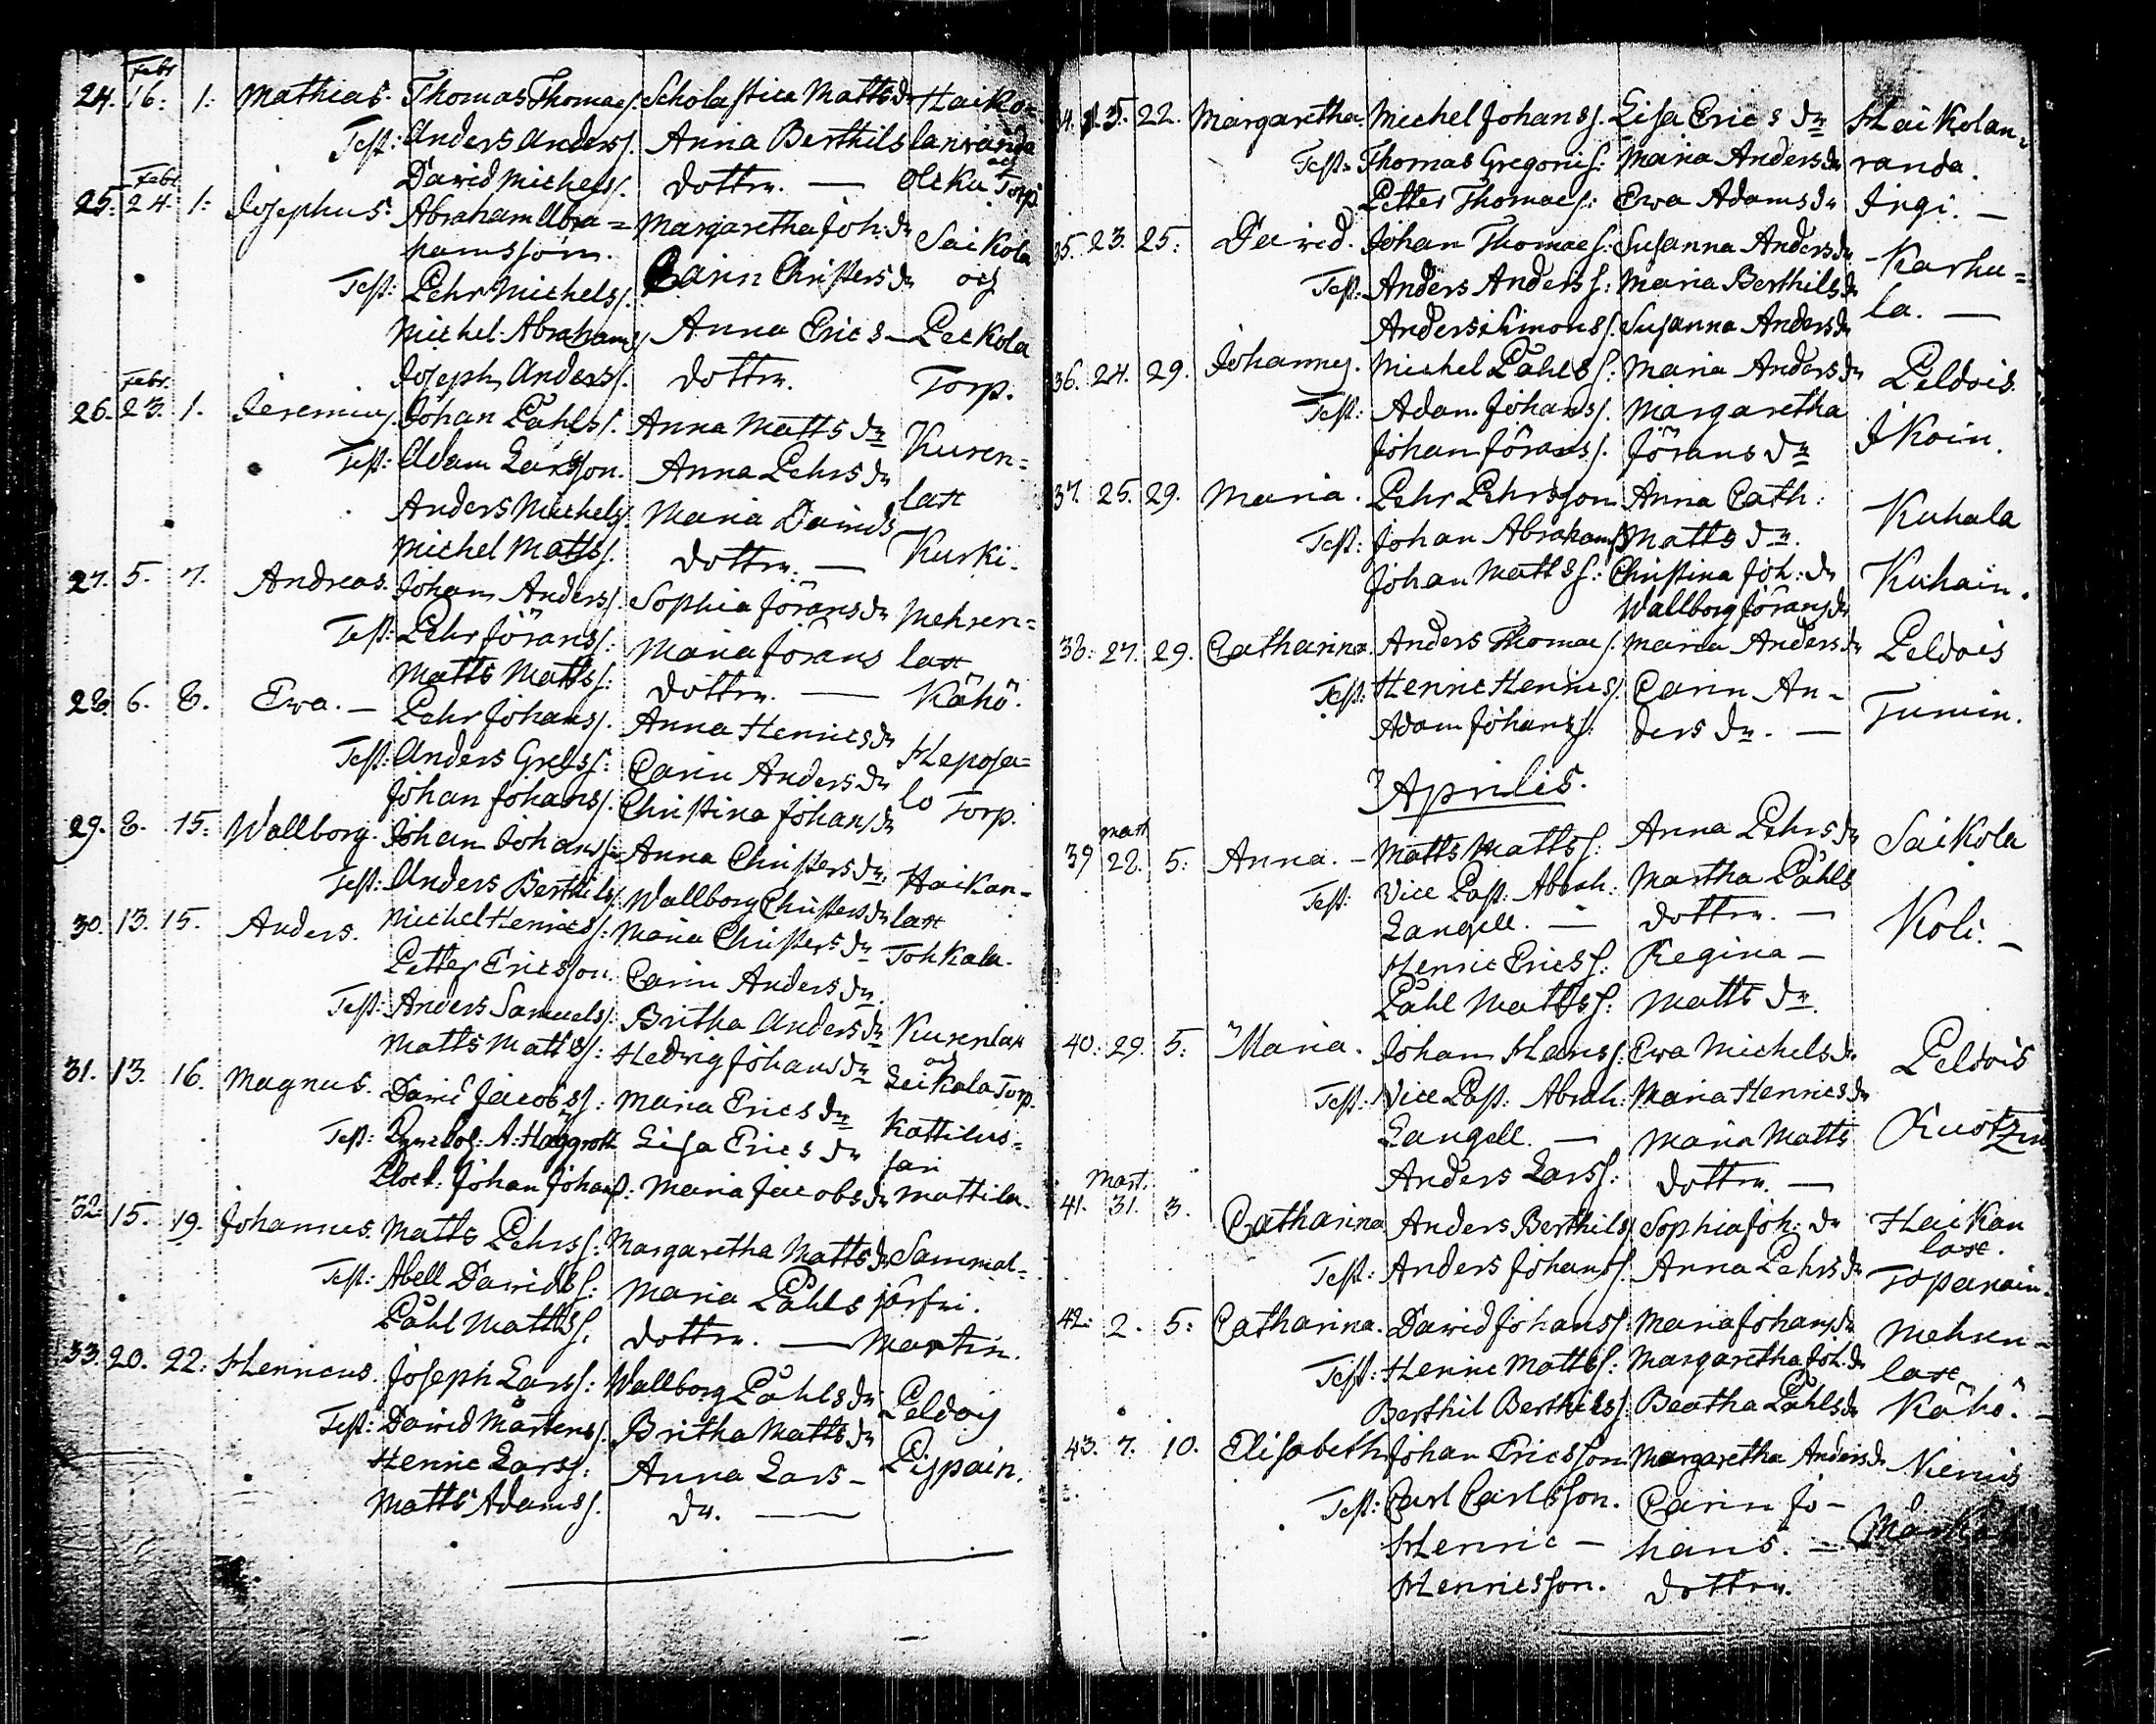 Febr
24. 16. 1. Mathias. Thomas Thomaes. Scholastica Mattsdr Haiko=
Test: Anders Anders. Anna Berthils lanranda
David Michels. dottrr. — och Olcku Torp.
Febr
25. 24. 1: Josephus. Abraham Abra= Margaretha Joh: dr Saikola
hamssson. Carin Christersdr och
Test: Pehr Michels.
Michel Abrahams. Anna Erics— Peckola
Joseph Anders. dottrr. Torp.
Febr.
26. 23. 1. Jeremias. Johan Påhls. Anna Matts dr Kuren=
Test: Adam Larsson. Anna Pehrs dr lax
Anders Michels. Maria Davids
Michel Matts. dottrr. — Kurki.
27. 5. 7. Andreas. Johan Anders. Sophia Jöransdr Mehren=
Test: Pehr Jörans: Maria Jörans lax
Matts Matts: dottrr. — Kähö.
28. 6. 8. Ewa. — Pehr Johans. Anna Henricsdr Heposa=
Test: Anders Grels: Carin Andersdr lo Torp.
Johan Johans. Christina Johansdr
29. 8. 15: Wallborg. Johan Johans. Anna Christersdr. Haikan=
Test: Anders Berthils. Wallborg Christersdr lax
Michel Henrics: Maria Christersdr Tohkala.
30. 13. 15. Anders. Petter Ericsson. Carin Andersdr. Kurenlax
Test: Anders Samuels: Britha Andersdr och
Matts Matts: Hedvig Johansdr Leikola Torp.
31. 13. 16. Magnus. David Jacobs: Maria Erics dr Kattilus=
Test: A: Haggroth Lisa Erics dr sari
Clock: Johan Johans: Maria Jacobsdr Mattila.
32. 15. 19. Johannes. Matts Pehrs: Margaretha Mattsdr Sammal=
Test: Abell Davids: Maria Påhls
Påhl Matts. dottrr. — Martin.
33. 20. 22: Henricus. Joseph Lars: Wallborg Påhlsdr Peldois
Test: David Mårtens. Britha Mattsdr Pispain.
Henric Lars: Anna Lars—
Matts Adams. dr. —
34. 15. 22. Margaretha. Michel Johans. Lisa Erics dr Haikolan=
Test: Thomas Gregoris: Maria Andersdr randa.
Petter Thomaes: Ewa Adamsdr Ingi. —
35. 23. 25: David. Johan Thomaes: Susanna Andersdr Karhu=
Test: Anders Anders: Maria Berthilsdr la. —
Anders Simons. Susanna Andersdr
36. 24. 29. Johannes. Michel Påhls: Maria Andersdr Peldois
Test: Adam Johans. Margaretha
Johan Jörans. Jörans dr Ikoin.
37. 25. 29. Maria. Pehr Pehrsson Anna Cath: Kuhala
Test: Johan Abrahams Matts dr.
Johan Matts: Christina Joh: dr Kuhain.
Wallborg Jöransdr
38: 27. 29. Catharina. Anders Thomae. Maria Andersdr Peldois
Test: Henric Henrics. Carin An=
Adam Johans: ders dr. — Tumin.
Aprilis.
Mart
39 28. 5: Anna. — Matts Matts: Anna Pehrsdr Saikola
Test: Vice Past: Abrah: Martha Påhls
Langell. — dottrr. — Koli. —
Henric Erics: Regina —
Påhl Matts: Matts dr.
40: 29. 5: Maria. Johan Hans: Ewa Michelsdr. Peldois
Test: Vice Past: Abrah: Maria Henricsdr
Langell. — Maria Matts
Anders Lars: dottrr. —
Mart.
41. 31. 3. Catharina Anders Berthils. Sophia Joh: dr Haikan
laxe.
Test: Anders Johans. Anna Pehrsdr Topanain.
42: 2. 5: Catharina. David Johans: Maria Johansdr Mehren=
Test: Henric Matts: Margaretha Joh. dr laxe
Berthil Berthils: Beatha Påhlsdr Kähö. —
43. 7. 10. Elisabeth Johan Ericsson Margaretha Andersdr Niemis
Test: Carl Carlsson. Carin Jo—
Henric — hans. —
Henricsson. dottrr.